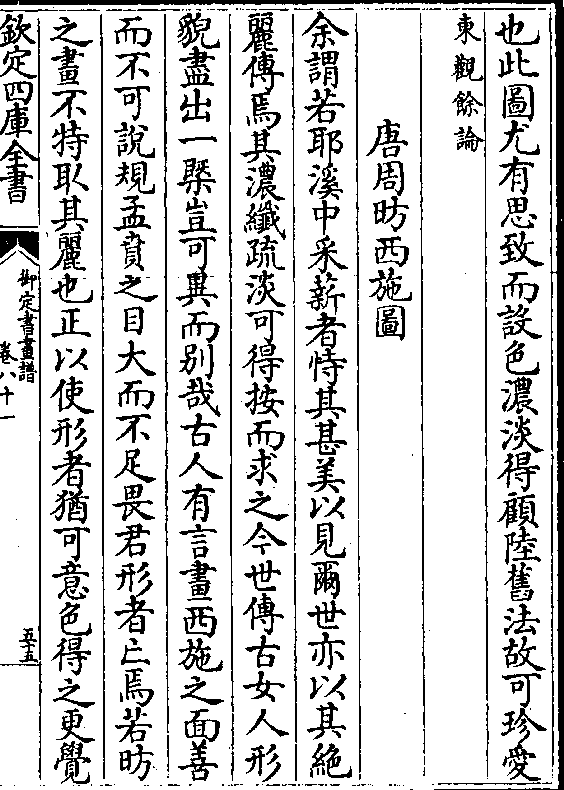 也此圖尤有思致而設色濃淡得顧陸舊法故可珍愛
東觀餘論
唐周昉西施圖
余謂若耶溪中采薪者恃其甚美以見爾世亦以其絶
麗傳焉其濃纖疏淡可得按而求之今世傳古女人形
貌盡出一槩豈可異而别哉古人有言畫西施之面善
而不可說規孟賁之目大而不足畏君形者亡焉若昉
之畫不特取其麗也正以使形者猶可意色得之更覺
欽定四庫全書
御定書畫譜
卷八十一
五十五